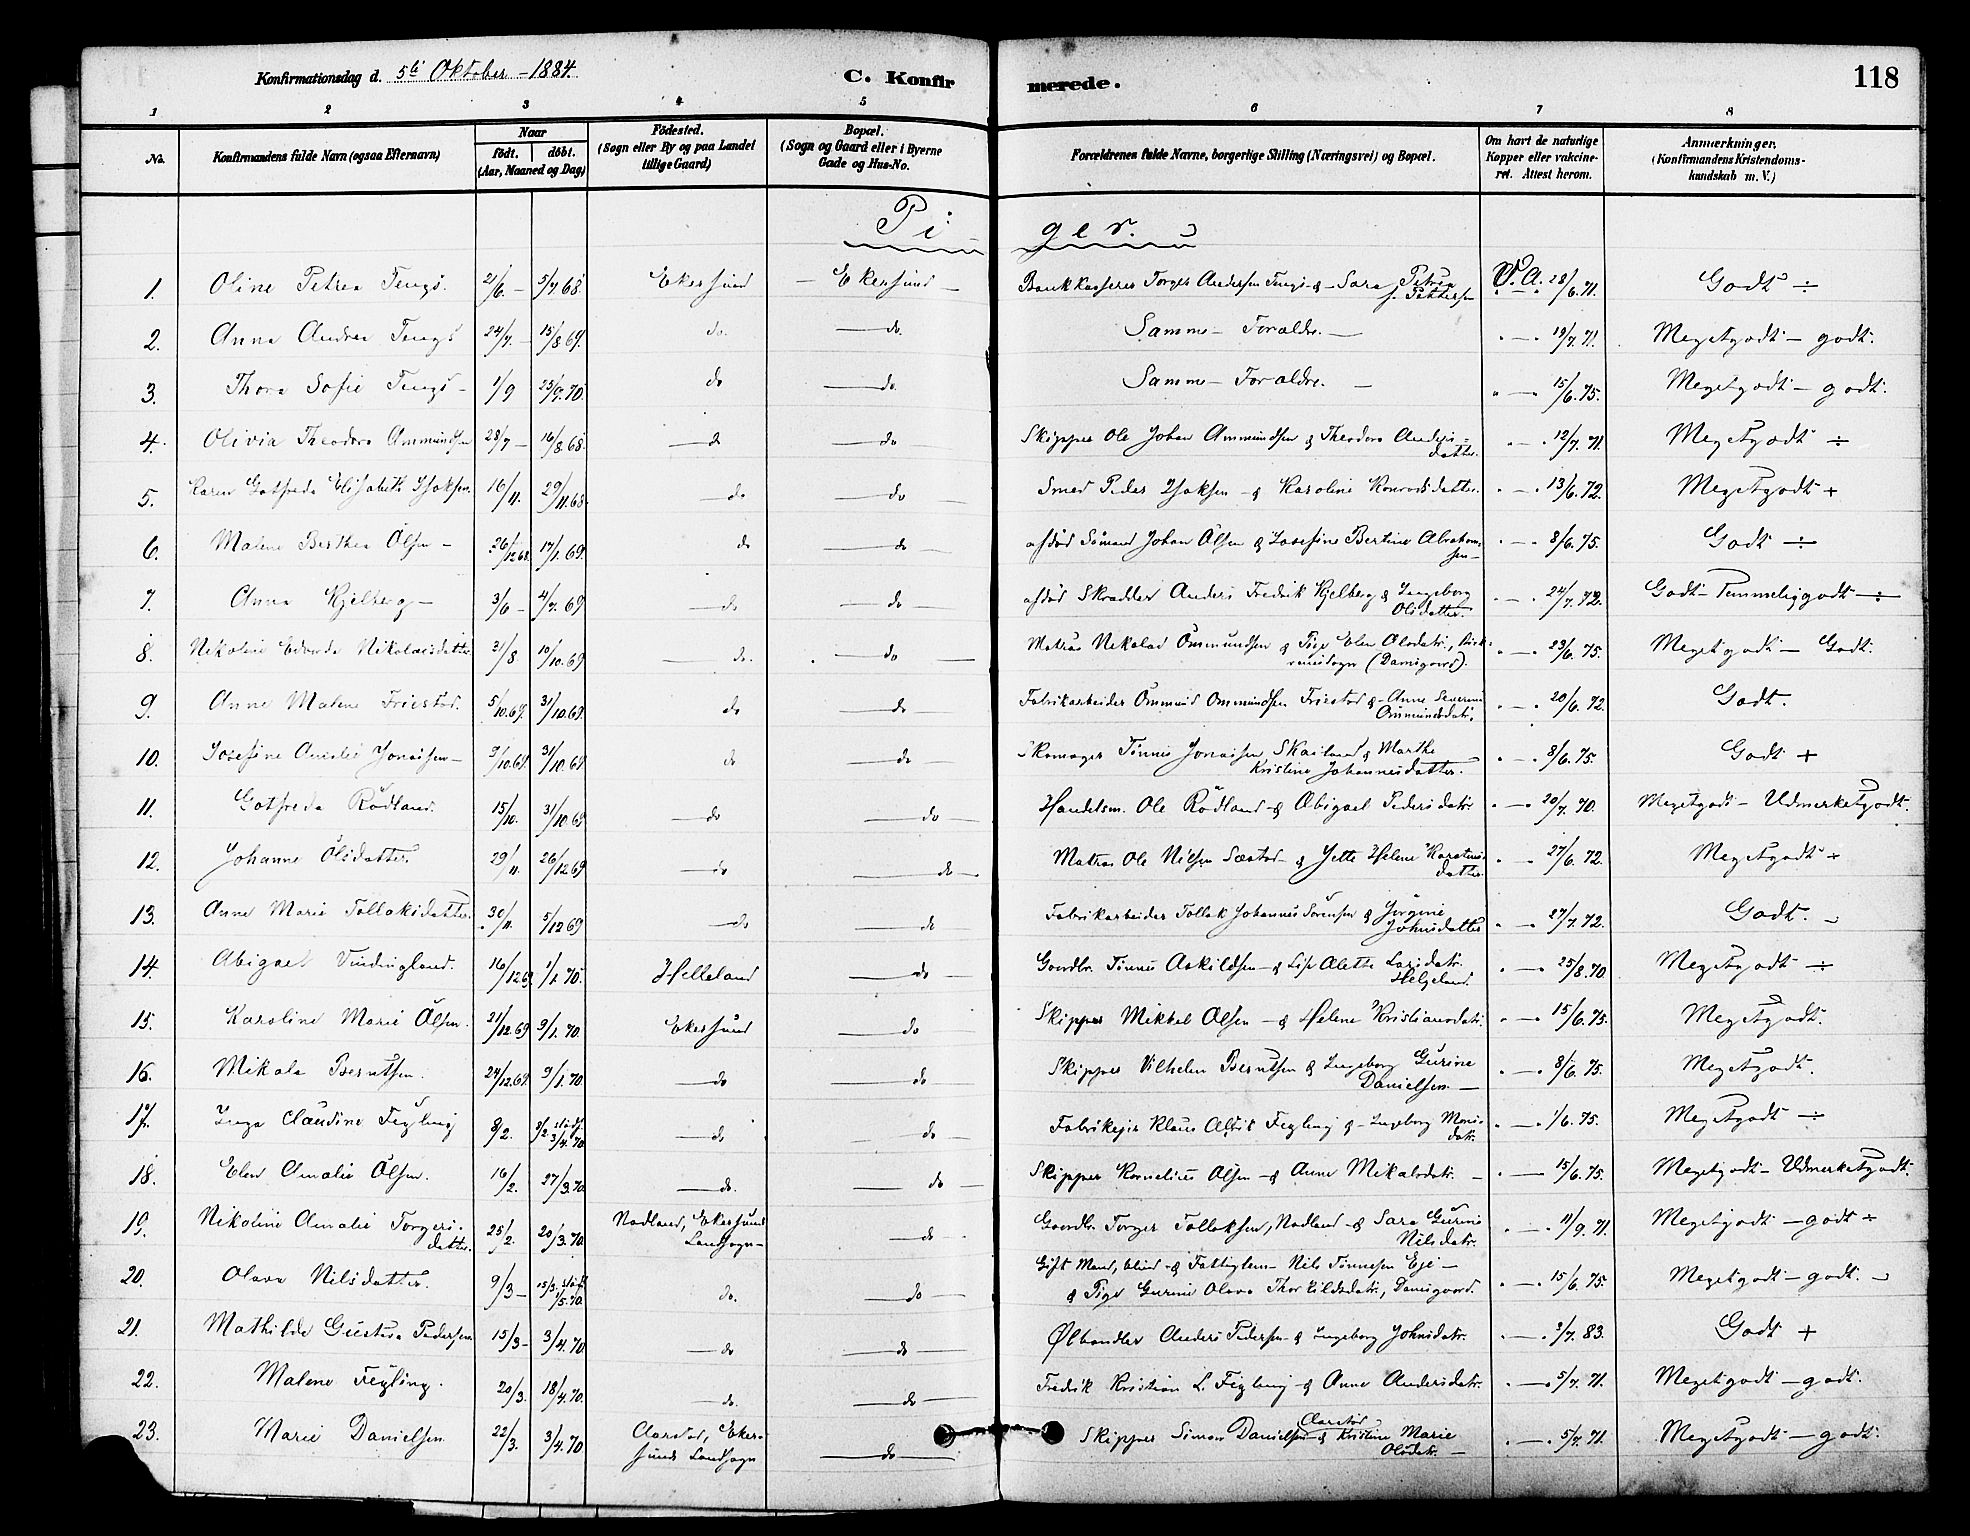 Konfirmationsdag d. 5te Oktober - 1884.
C. Konfirmerede.
118
1 2 3 4 5 6 7 8
No. Konfirmandens fulde Navn (ogsaa Efternavn) Naar født. døbt. (Aar, Maaned og Dag) Fødested. (Sogn eller By og paa Landet tillige Gaard) Bopæl. (Sogn og Gaard eller i Byerne Gade og Hus-No. Forældrenes fulde Navne, borgerlige Stilling (Næringsvei) og Bopæl. Om havt de naturlige Kopper eller vakcineret. Attest herom. Anmærkninger. (Konfirmandens Kristendomskundskab m. V.)
Piger.
1. Oline Petrea Tengs. 21/6 - 5/7.68. Ekersund - Ekersund - Bankkasserer Torger Andersen Tengs & Sara Petrea f. Pettersen V. A. 28/6.71. Godt ÷
2. Anna Andrea Tengs 24/7. - 15/8 69. do. - do. Samme - Foraldre. - " - " 19/7.71. Megetgodt - godt.
3. Thora Sofie Tengs - 1/9 23/9.70. do - do. Samme - Foraldre. - " - " 15/6.75. Megetgodt - godt.
4. Olivia Theodora Ammundsen 28/7 - 16/8.68. - do - do Skipper Ole Johan Ammundsen & Theodora Andersdatter. " - " 12/7.71. Megetgodt ÷
5. Karen Gotfreda Elisabeth Isaksen. 16/11. 29/11.68. - do - do - Smed Peder Isaksen - & Karoline Konradsdatter. " - " 13/6.72. Megetgodt +
6. Malene Berthea Olsen - 26/12 68. 17/1.69. do - do - afdød Sømand Johan Olsen & Josefine Bertine Abrahamsen - " - " 8/6.75. Godt - ÷
7. Anna Kjelberg - 3/6 - 4/7.69 - do - do - afdød Skradder Anders Fredrik Kjelberg & Ingeborg Olsdatter. " - " 24/7.72. Godt - Temmeliggodt - ÷
8. Nikoline Edvarda Nikolaisdatter 31/8 10/10.69 - do. - do - Matros Nikolai Ommundsen & Pige Elen Olsdatr., (Damsgaard). " - " 23/6.75. Megetgodt - Godt.
9. Anne Malene Friestad. 5/10.69. 31/10.69. do - do - Fabrikarbeider Ommund Ommundsen Friestad & Anne Severine Ommundsdatr. " - " 20/6.72. Godt.
10. Josefine Amalie Jonassen - 9/10.69. 31/10.69. do - do - Skomager Tønnes Jonassen Skailand & Marthe Kristine Johannesdatter. " - " 8/6.75. Godt +
11. Gotfreda Rødland. 15/10. 31/10.69 - do - do - Handelsm. Ole Rødland & Abigael Pedersdatr " - " 20/7.70. Megetgodt - Udmerketgodt.
12. Johanne Olsdatter. 29/11. 26/12 69 - do - do - Matros Ole Nilsen Sæstad - & Jette Helene Karstensdatter " - " 27/6.72. Megetgodt +
13. Anne Marie Tollaksdatter. 30/11. 5/12 69 - do - do - Fabrikarbeider Tollak Johannes Sørensen & Jørgine Johnsdatter " - " 27/7.72. Godt. -
14. Abigael Vindingland. 16/12.69. 1/1.70. Helleland - do - Gaardbr. Tønnes Askildsen - & Lise Alette Larsdatr. Helgeland. " - " 25/8.70 Megetgodt - ÷
15. Karoline Marie Olsen. 21/12.69 9/1.70. Ekersund - do Skipper Mikkel Olsen - & Helene Kristiansdatr. " - " 15/6.75. Megetgodt.
16. Mikala Berntsen. 24/12.69. 9/1.70. - do - do - Skipper Vilhelm Berntsen & Ingeborg Gurine Danielsen. - " - " 8/6.75. Megetgodt.
17. Inga Claudine Feyling 8/2. 9/2. stadf. 3/4.70. - do - do - Fabrikejer Klaus Feyling & - Ingeborg Monsdatr. " - " 1/6.75. Megetgodt - ÷
18. Elen Amalie Olsen. 16/2. 27/3.70. - do. - do - Skipper Kornelius Olsen - & Anne Mikalsdatr. - " - " 15/6.75. Megetgodt - Udmerketgodt.
19. Nikoline Amalie Torgersdatter. 25/2. 20/3.70. Nodland, Ekersunds Landsogn - - do - Gaardbr. Torger Tollaksen, Nodland - & Sara Gurine Nilsdatr. " - " 11/9.71. Megetgodt - godt ÷
20. Olava Nilsdatter. 9/3 - 15/3. stadf. 1/5.70. do. - do - Gift Mand, blind - & Fattiglem - Nils Tønnesen Eje - & Pige Gurine Olava Thorkildsdatr., Damsgaard. " - " 15/6.75. Megetgodt - godt. -
21. Mathilde Gustava Pedersen 15/3 - 3/4.70 - do - do - Ølhandler Anders Pedersen - & Ingeborg Johnsdatr. " - " 3/7.83. Godt +
22. Malene Feyling. 20/3. 18/4.70. - do. - do - Fredrik Kristian L. Feyling - & Anne Andersdatr. " - " 5/7.71. Megetgodt - godt.
23. Marie Danielsen 22/3. 3/4.70 Aarstad, Ekersunds Landsogn - do - Skipper Simon Danielsen Aarstad & Kristine Marie Olsdatr. - " - " 5/7.71. Megetgodt - godt.